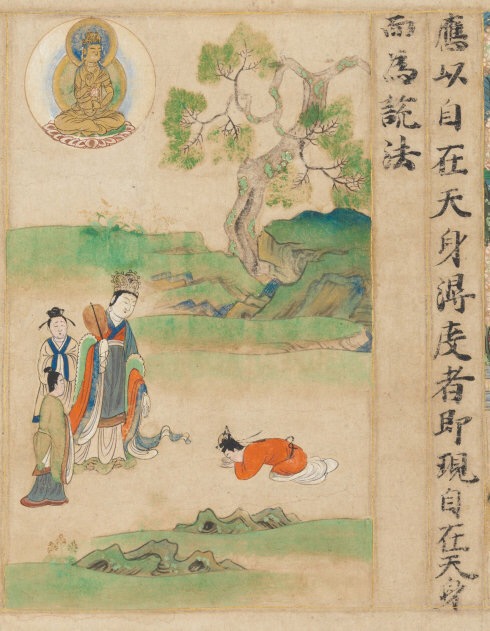 應以自在天身得度者即現自在天身
而為説法